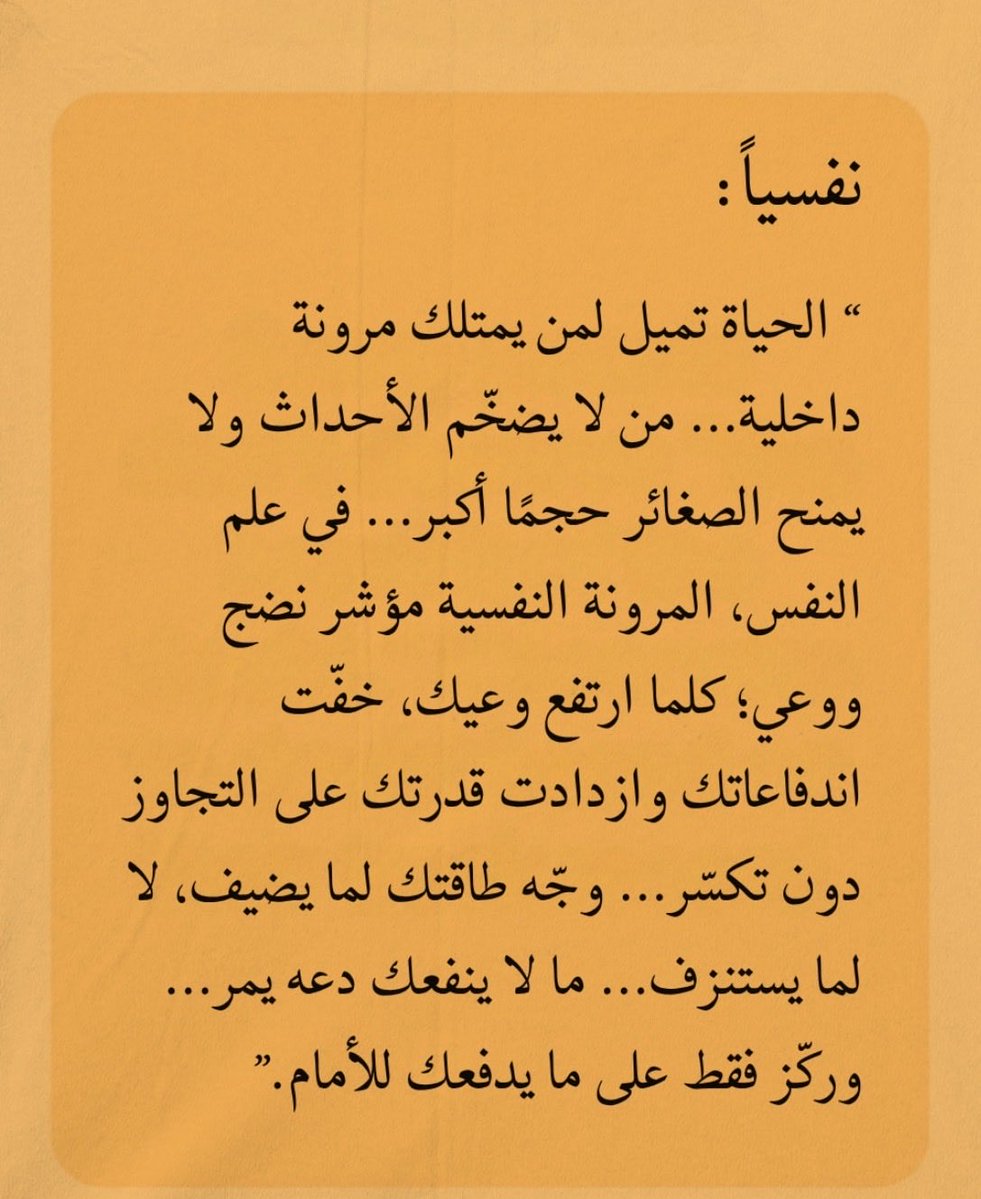 نفسياً :
“ الحياة تميل لمن يمتلك مرونة
داخلية... من لا يضخّم الأحداث ولا
يمنح الصغائر حجمًا أكبر... في علم
النفس، المرونة النفسية مؤشر نضج
ووعي؛ كلما ارتفع وعيك، خفّت
اندفاعاتك وازدادت قدرتك على التجاوز
دون تكسّر... وجّه طاقتك لما يضيف، لا
لما يستنزف... ما لا ينفعك دعه يمر...
وركّز فقط على ما يدفعك للأمام.”